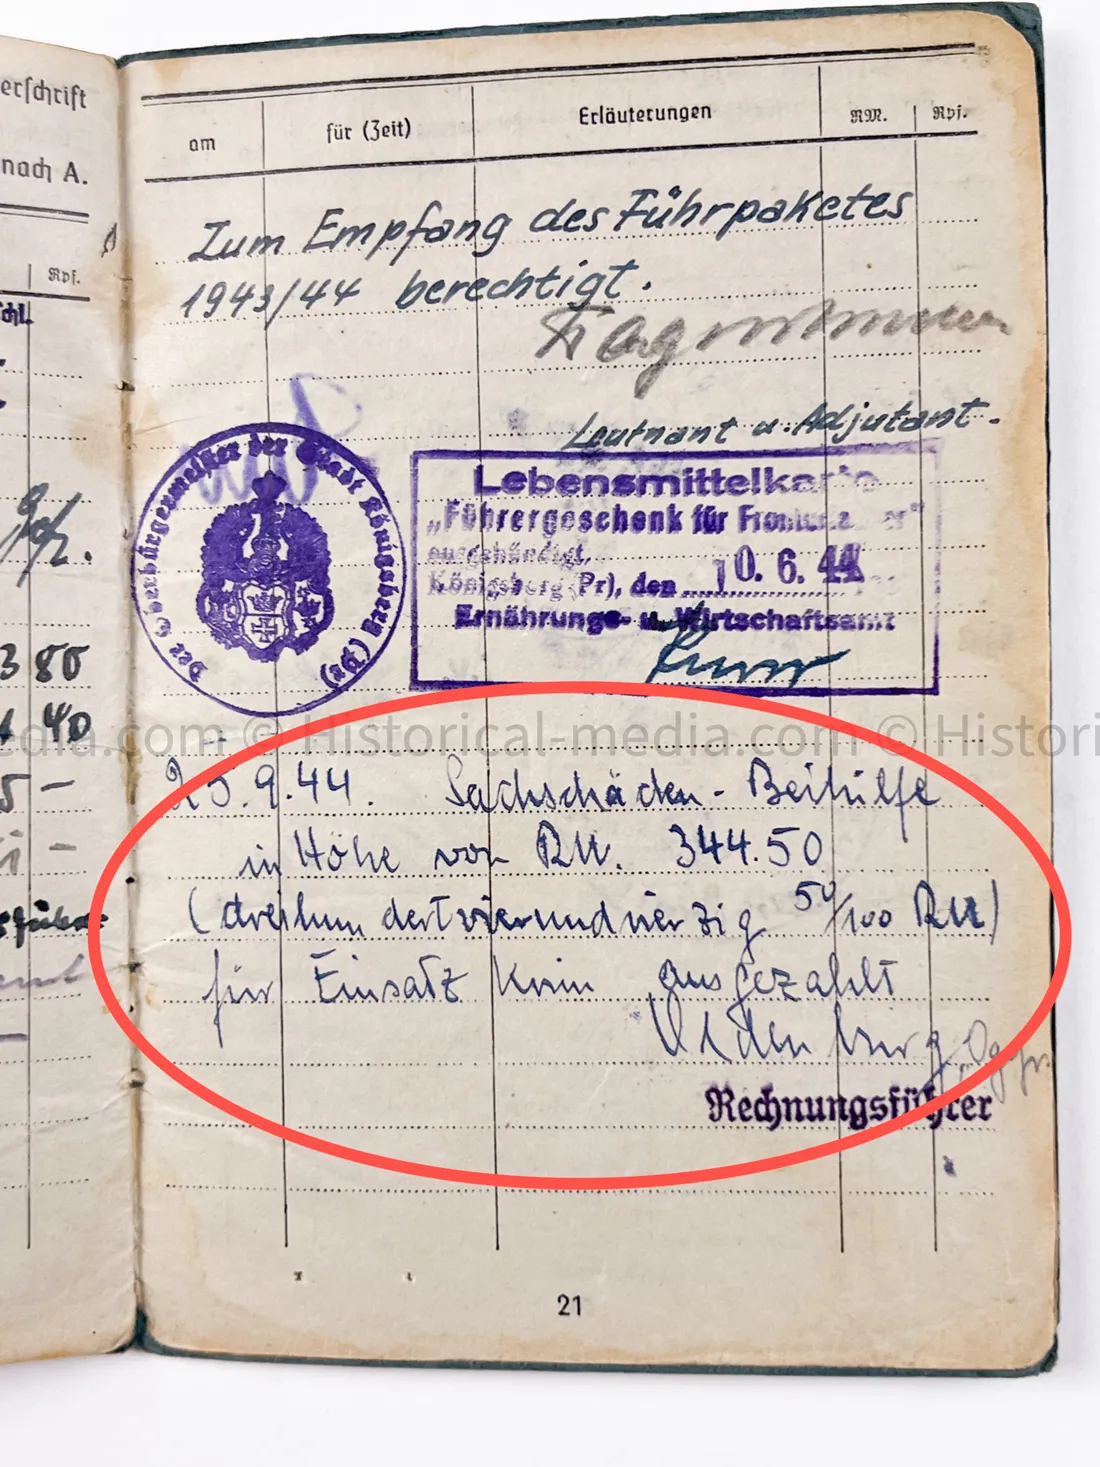 erschrift
nach A.
Rpf.
chl.
Gefr.
3 80
40
5 –
–
am für (Zeit) Erläuterungen RM. Rpf.
Zum Empfang des Führpaketes
1943/44 berechtigt.
Leutnant u. Adjutant.
Der Oberbürgermeister der Stadt Königsberg (Pr)
Lebensmittelkarte
„Führergeschenk für Fronturlauber"
ausgehändigt.
Königsberg (Pr), den 10. 6. 44
Ernährungs- u. Wirtschaftsamt
edia.com © Historical-media.com © Histori
25.9.44. Sachschäden-Beihilfe
in Höhe von RM. 344.50
(dreihundertvierundvierzig 50/100 RM)
für Einsatz Krim ausgezahlt
Ogefr.
Rechnungsführer
21